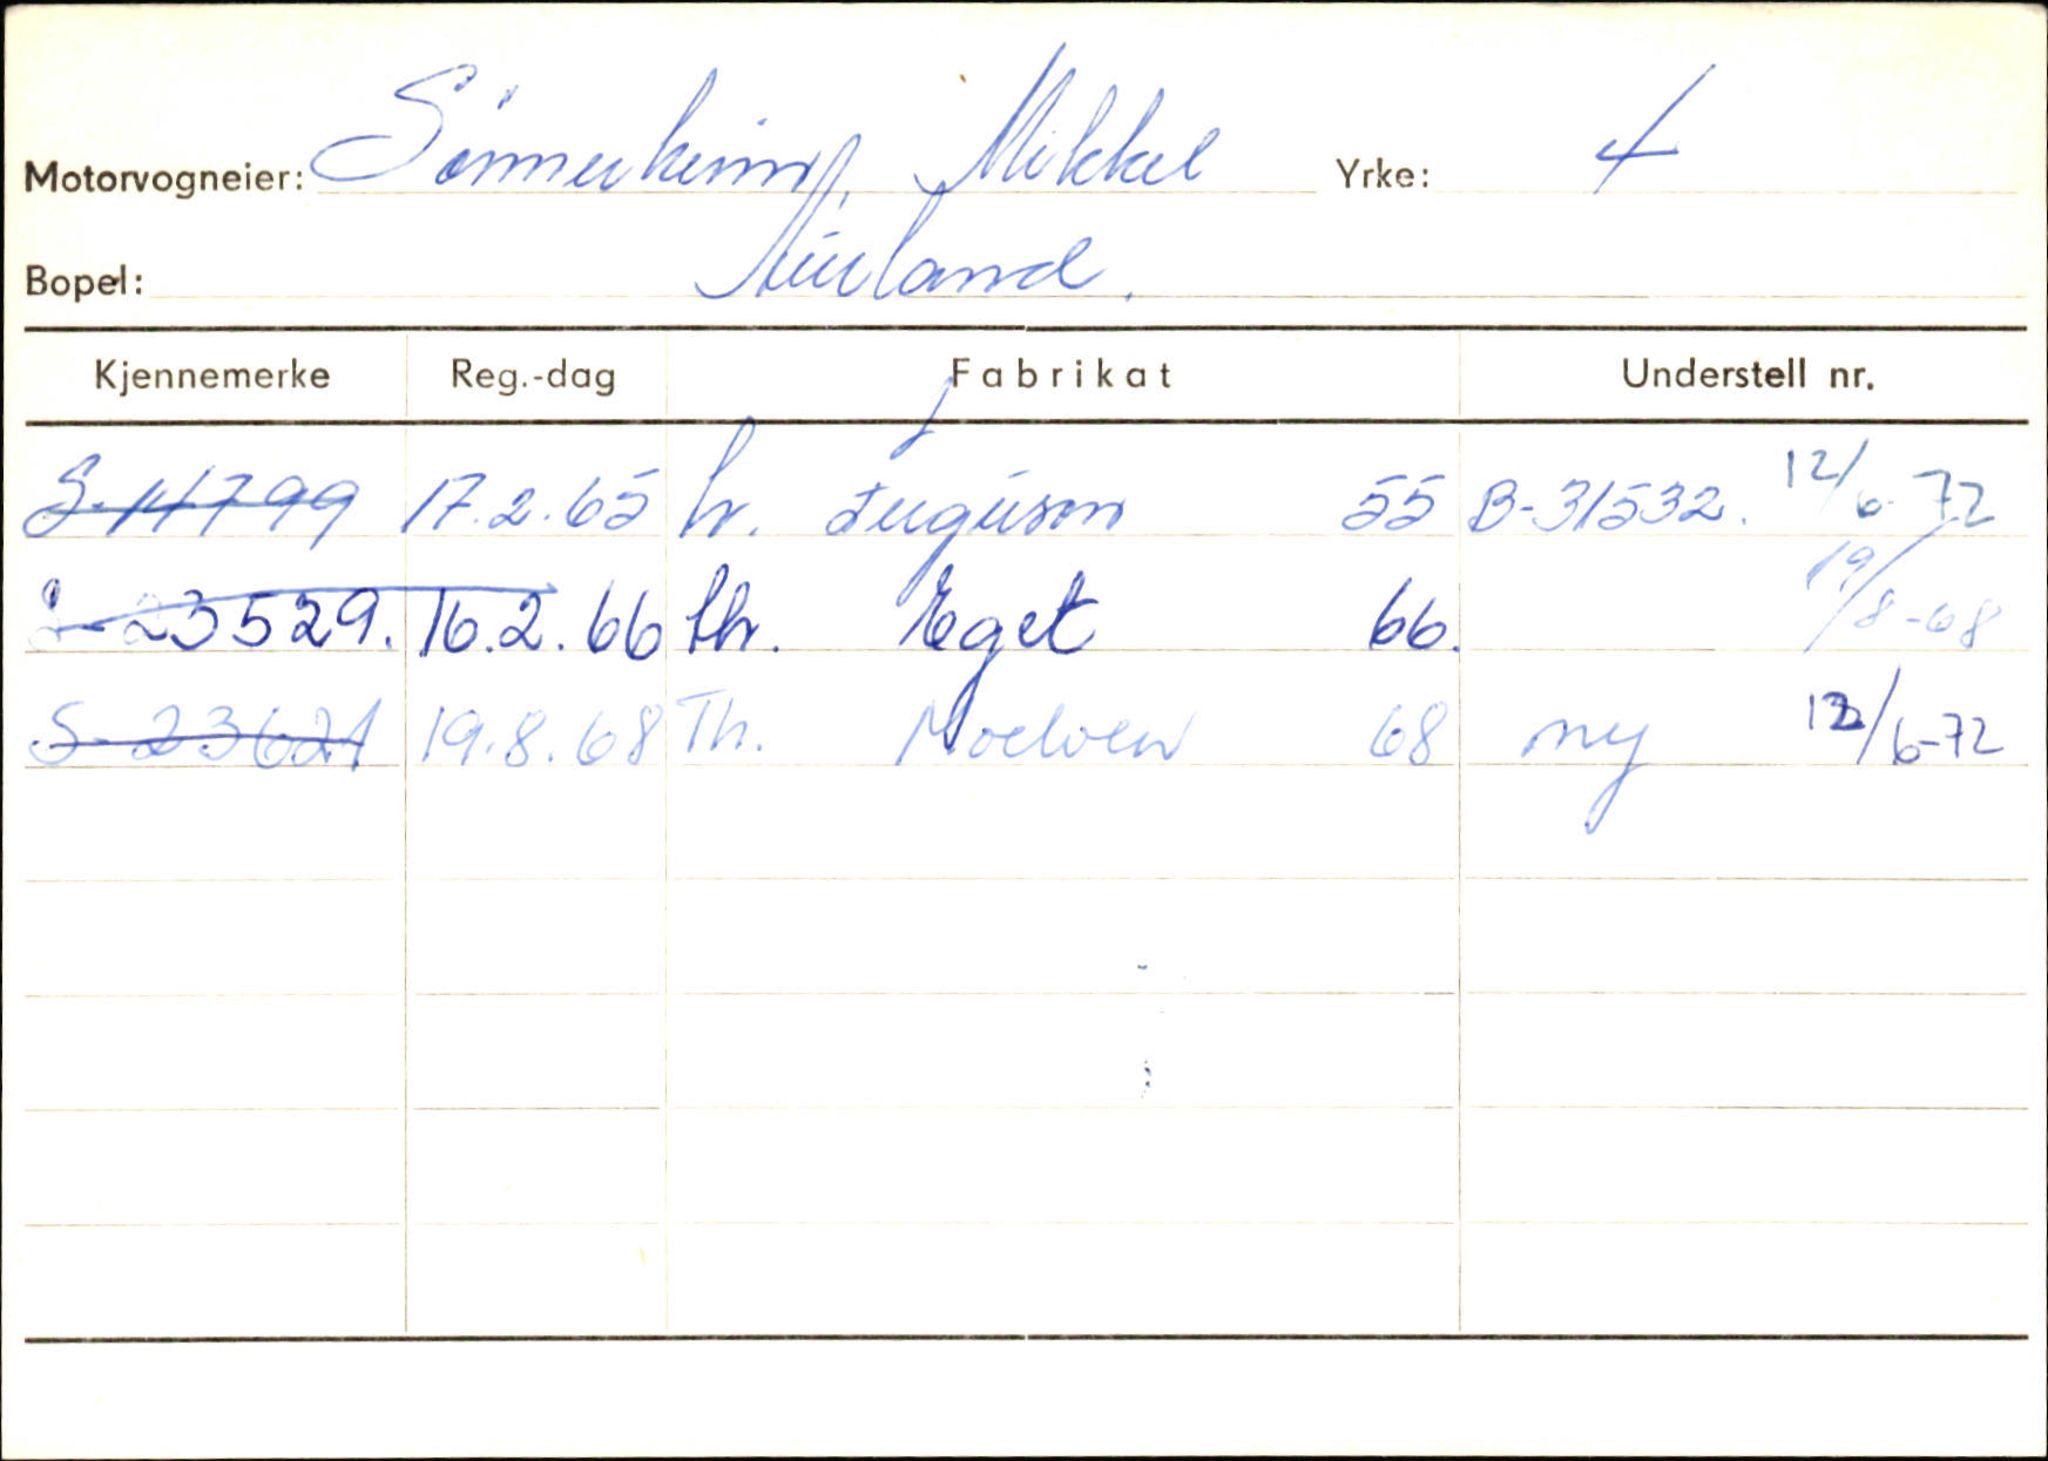 Motorvogneier: Sønnerheim, Mikkel Yrke: 4
Bopel: Aurland.
Kjennemerke Reg.-dag Fabrikat Understell nr.
S-14799 17.2.65 tr. Ferguson 55 B-31532. 12/6-72
S-23529. 16.2.66 th. Eget 66. 19/8-68
S-23621 19.8.68 Th. Moelven 68 ny 12/6-72